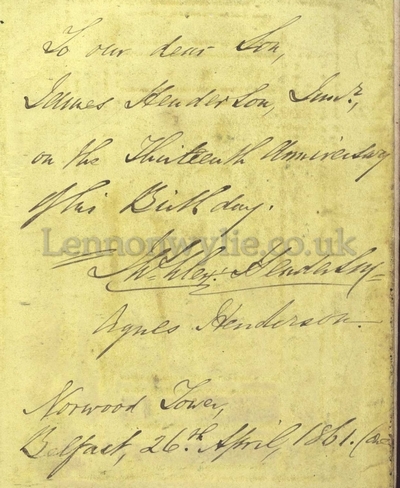 To our dear Son,
James Henderson, Junr.,
on the Thirteenth Anniversary
of his Birth day.
Lennonwylie.co.uk
Henderson
Agnes Henderson.
Norwood Tower,
Belfast, 26th April, 1861.